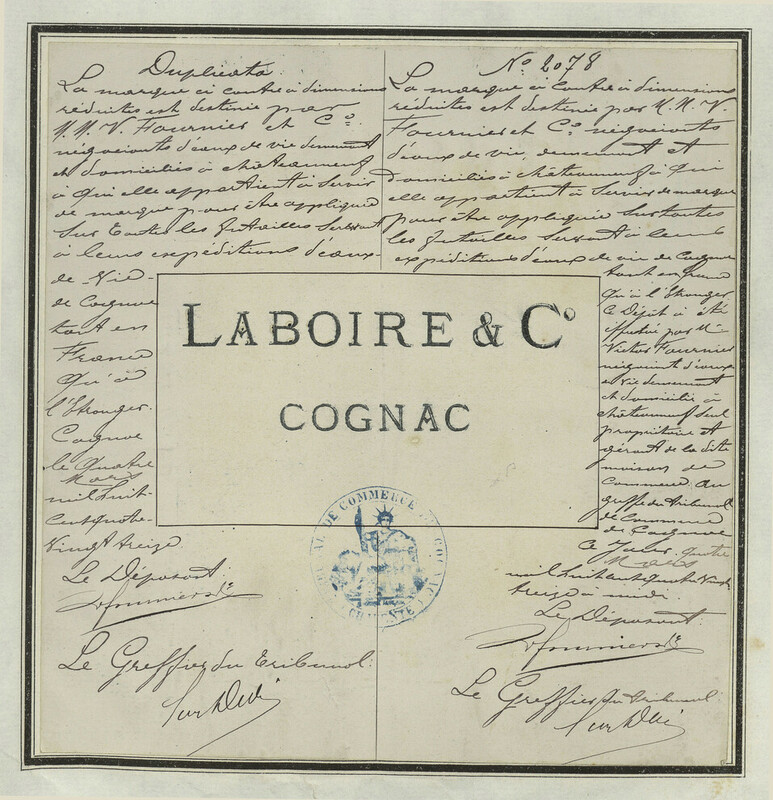 Duplicata.
La marque ci contre à dimensions
réduites est destinée par
M.M. V. Fournier et Cº
négociants d'eaux de vie demeurant
et domiciliés à châteauneuf
à qui elle appartient à servir
de marque pour être appliquée
sur toutes les futailles servant
à leurs expéditions d'eaux-
de-Vie-
de Cognac
tant en
France
qu'à
l'Etranger.
Cognac
le quatre
Mars
mil huit-
cent quatre-
vingt treize
Le Déposant:
V. Fournier & Cie
Le Greffier du Tribunal:
Nº 2078
La marque ci contre à dimensions
réduites est destinée par M.M. V.
Fournier et Cº négociants
d'eaux de vie, demeurant et
domiciliés à châteauneuf à qui
elle appartient à servir de marque
pour être appliquée sur toutes
les futailles servant à leurs
expéditions d'eaux de vie de Cognac
tant en France
qu'à l'Etranger
Ce Dépôt a été
effectué par Mr
Victor Fournier
négociant d'eaux
de vie demeurant
et domicilié à
châteauneuf seul
propriétaire et
gérant de la dite
maison de
Commerce au
greffe du tribunal
de Commerce
de Cognac
Ce Jour quatre
Mars
mil huit cent quatre vingt
treize à midi.
Le Déposant:
V. Fournier & Cie
Le Greffier du tribunal:
LABOIRE & Cº
COGNAC
TRIBUNAL DE COMMERCE DE COGNAC
CHARENTE